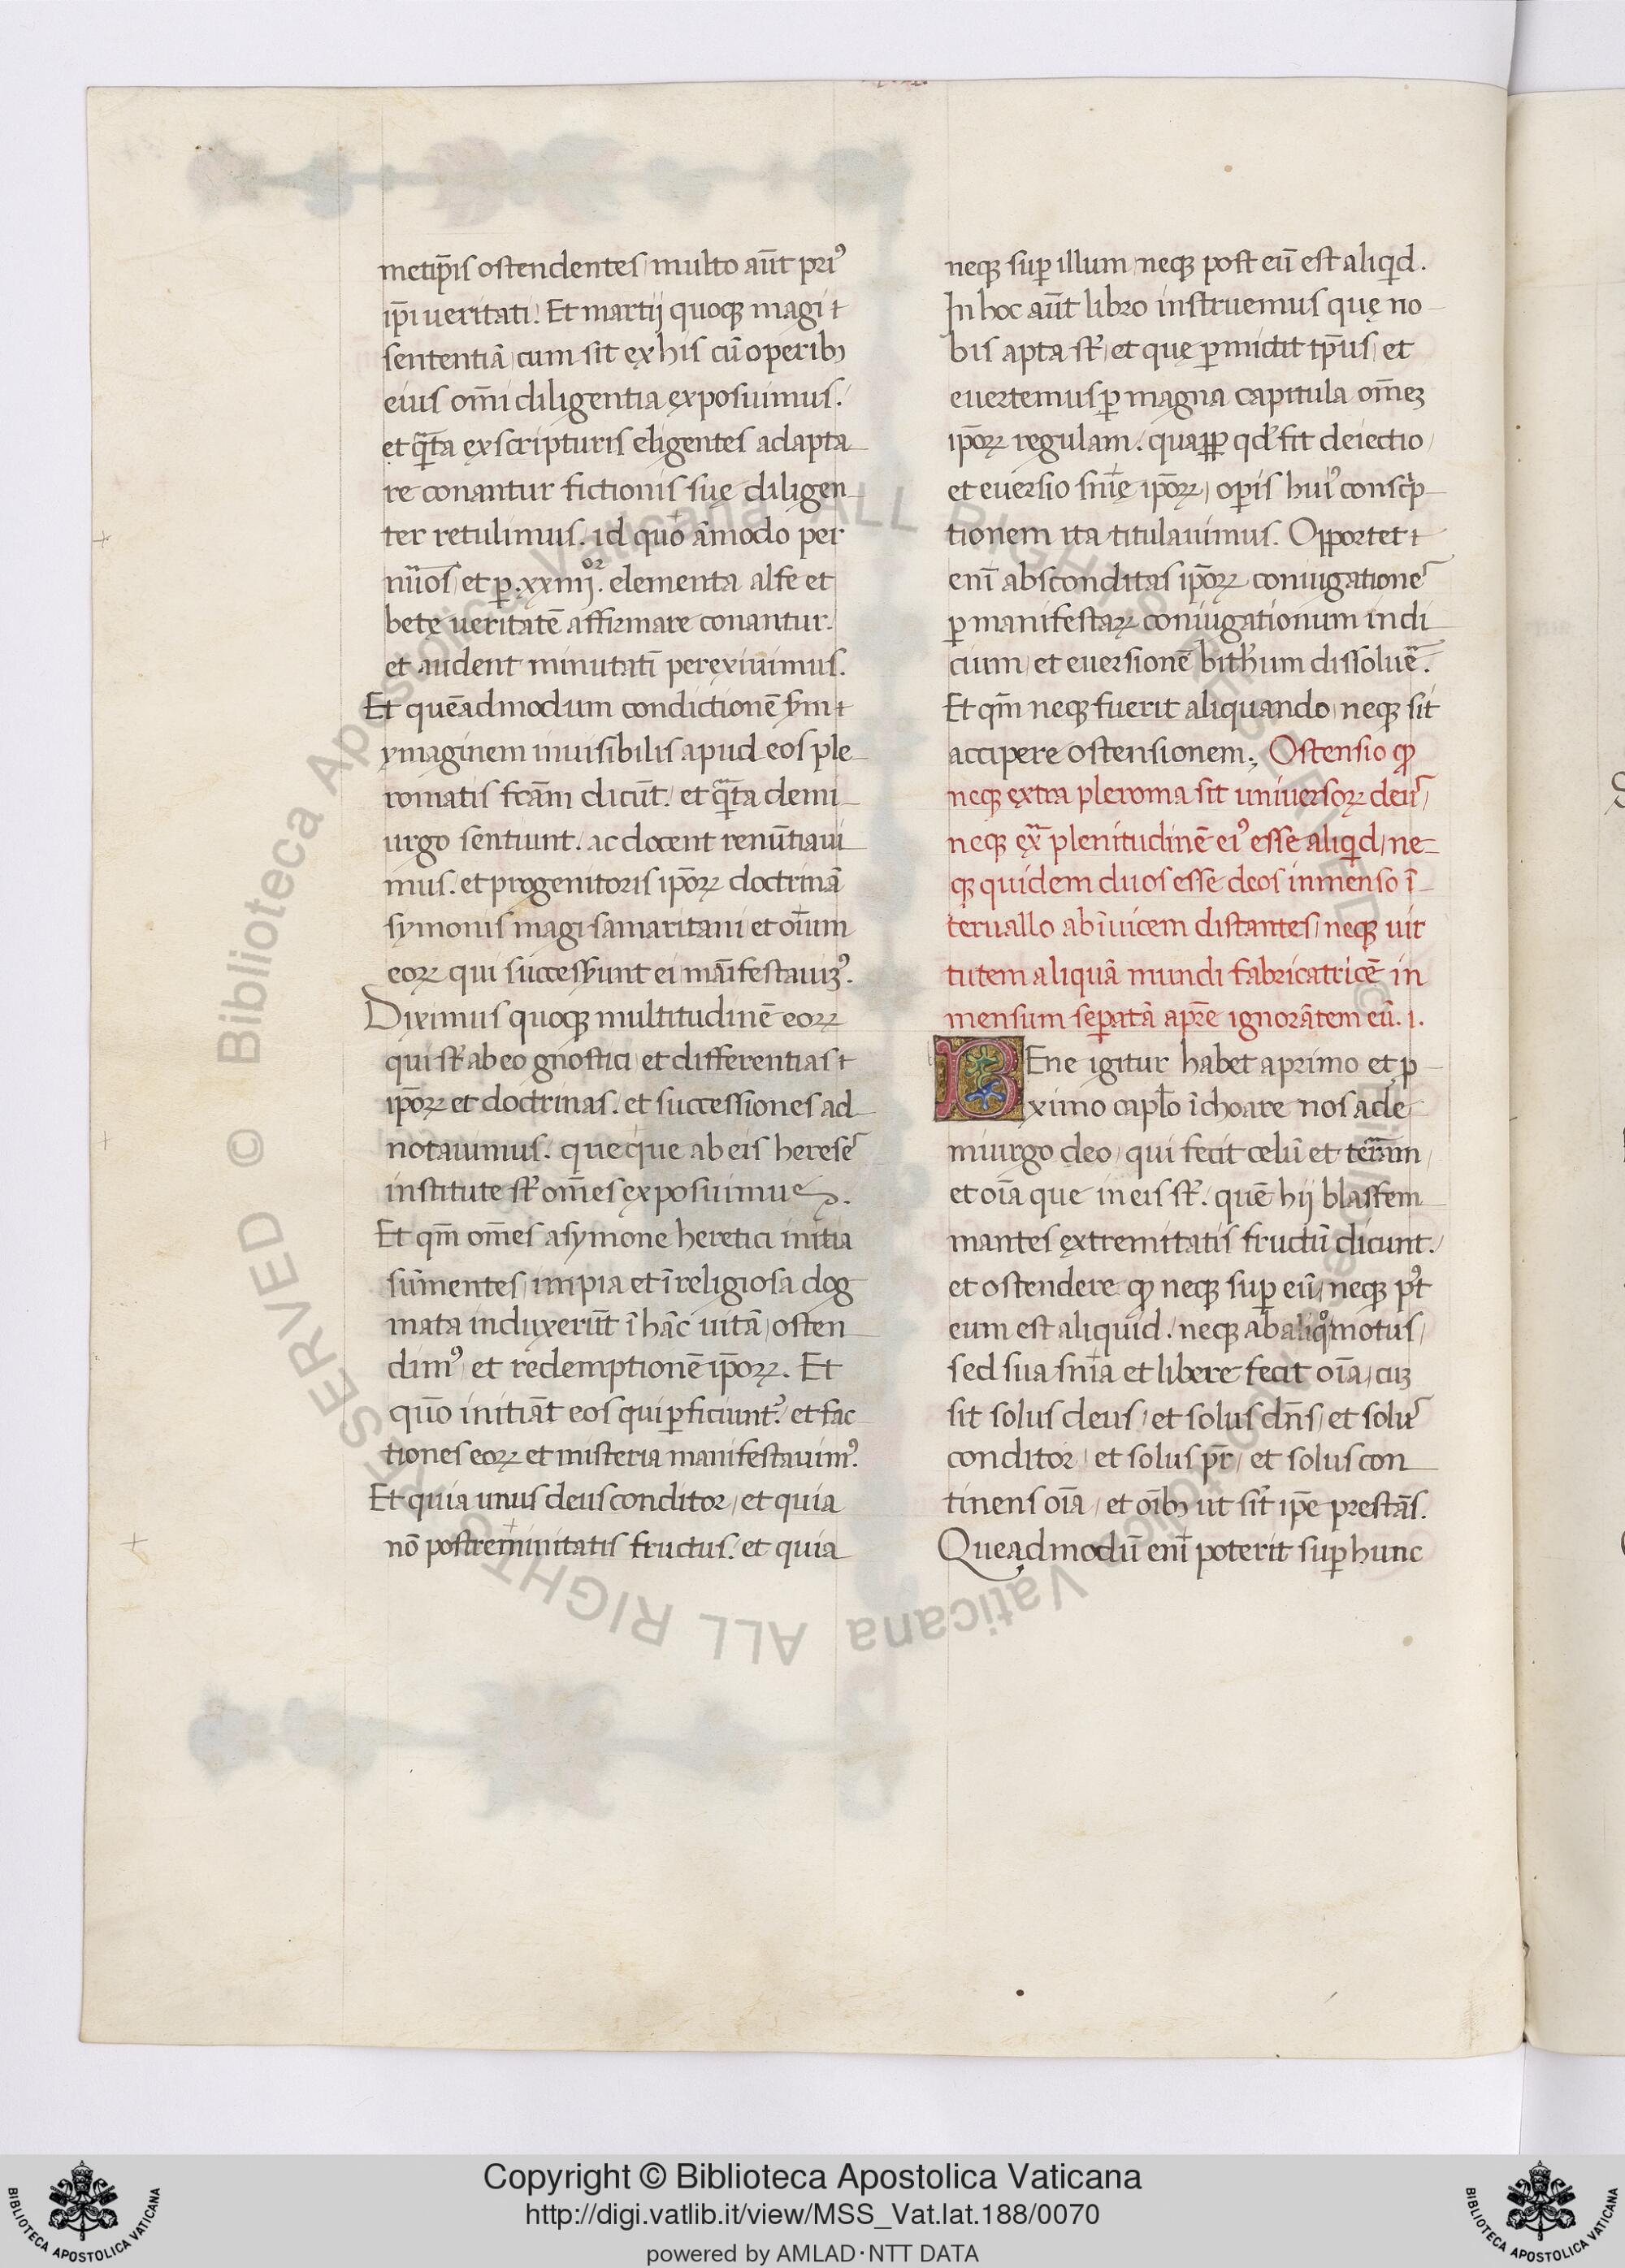 metip̄is ostendentes multo aūt pri⁹
ip̄i ueritati. Et martij quoqꝫ magi
sententiā cum sit ęx his cū operibꝫ
eius om̄i diligentia ęxposuimus.
et q̄ta ęx scripturis eligentes adapta
re conantur fictionis suę diligen
ter retulimus. id quo āmodo per
nūos et ꝑ .xxiiij. elementa alfe et
betę ueritatē affirmare conantur.
et audent minutatī peręxiuimus.
Et quēadmodum condictionē
ymaginem inuisibilis apud eos ple
romatis fc̄am dicūt. et q̄ta demi
urgo sentiunt. ac docent renūtiaui
mus. et progenitoris ip̄oꝝ doctrinā
symonis magi samaritani et oīum
eoꝝ qui successerunt ei māifestauiꝫ⁹.
Diximus quoqꝫ multitudinē eoꝝ
qui st̄ ab eo gnostici et differentias
ip̄oꝝ et doctrinas. et successiones ad
notauimus. queque ab eis hereses
institute st̄ om̄es ęxposuimus.
Et qm̄ om̄es a symone heretici initia
sūmentes impia et īreligiosa dog
mata induxerūt ī hāc uitā osten
dim⁹ et redemptionē ip̄oꝝ. Et
quō initiāt eos qui ꝑficiunt². et fac
tiones eoꝝ et misteria manifestauim⁹.
Et quia unus deus conditor et quia
nō postreminitatis fructus. et quia
neqꝫ suꝑ illum neqꝫ post eū est aliqid.
In hoc aūt libro instruemus quę no
bis apta st̄ et quę ꝑmictit tp̄us et
euertemus ꝑ magna capitula om̄eꝫ
ip̄oꝝ regulam. quaꝓꝑ qd̄ sit deiectio
et euersio sn̄ię ip̄oꝝ oꝑis hui⁹ conscⁱp
tionem ita titulauimus. Opportet
enī absconditas ip̄oꝝ coniugationes
ꝑ manifestaꝝ coniugationum indi
cium et euersionē bithum dissoluē.
Et qm̄ neqꝫ fuerit aliquando neqꝫ sit
accipere ostensionem. Ostensio ꝙ
neqꝫ ęxtra pleroma sit uniuersoꝝ deus
neqꝫ ęx̄ plenitudinē ei⁹ esse aliqid ne
qꝫ quidem duos esse deos inmenso ī
teruallo ab īuicem distantes neqꝫ uir
tutem aliquā mundi fabricatricē in
mensum seꝑatā a pr̄e ignorātem eū. i.
BEne igitur habet a primo et ꝓ
ximo capl̄o īchoare nos a de
miurgo deo qui fecit celū et terram
et oīa que in eis st̄. quē hij blasfem
mantes ęxtremitatis fructū dicunt.
et ostendere ꝙ neqꝫ suꝑ eū neqꝫ p⁹t
eum est aliquid. neqꝫ ab aliqͦ motus
sed sua sn̄ia et libere fecit oīa cuꝫ
sit solus deus et solus dn̄s et solus
conditor et solus pr̄ et solus con
tinens oīa et oībꝫ ut sīt ip̄e prestās.
Queadmodū enī poterit suꝑ hunc
Copyright © Biblioteca Apostolica Vaticana
http://digi.vatlib.it/view/MSS_Vat.lat.188/0070
powered by AMLAD·NTT DATA
BIBLIOTECA APOSTOLICA VATICANA
BIBLIOTECA APOSTOLICA VATICANA